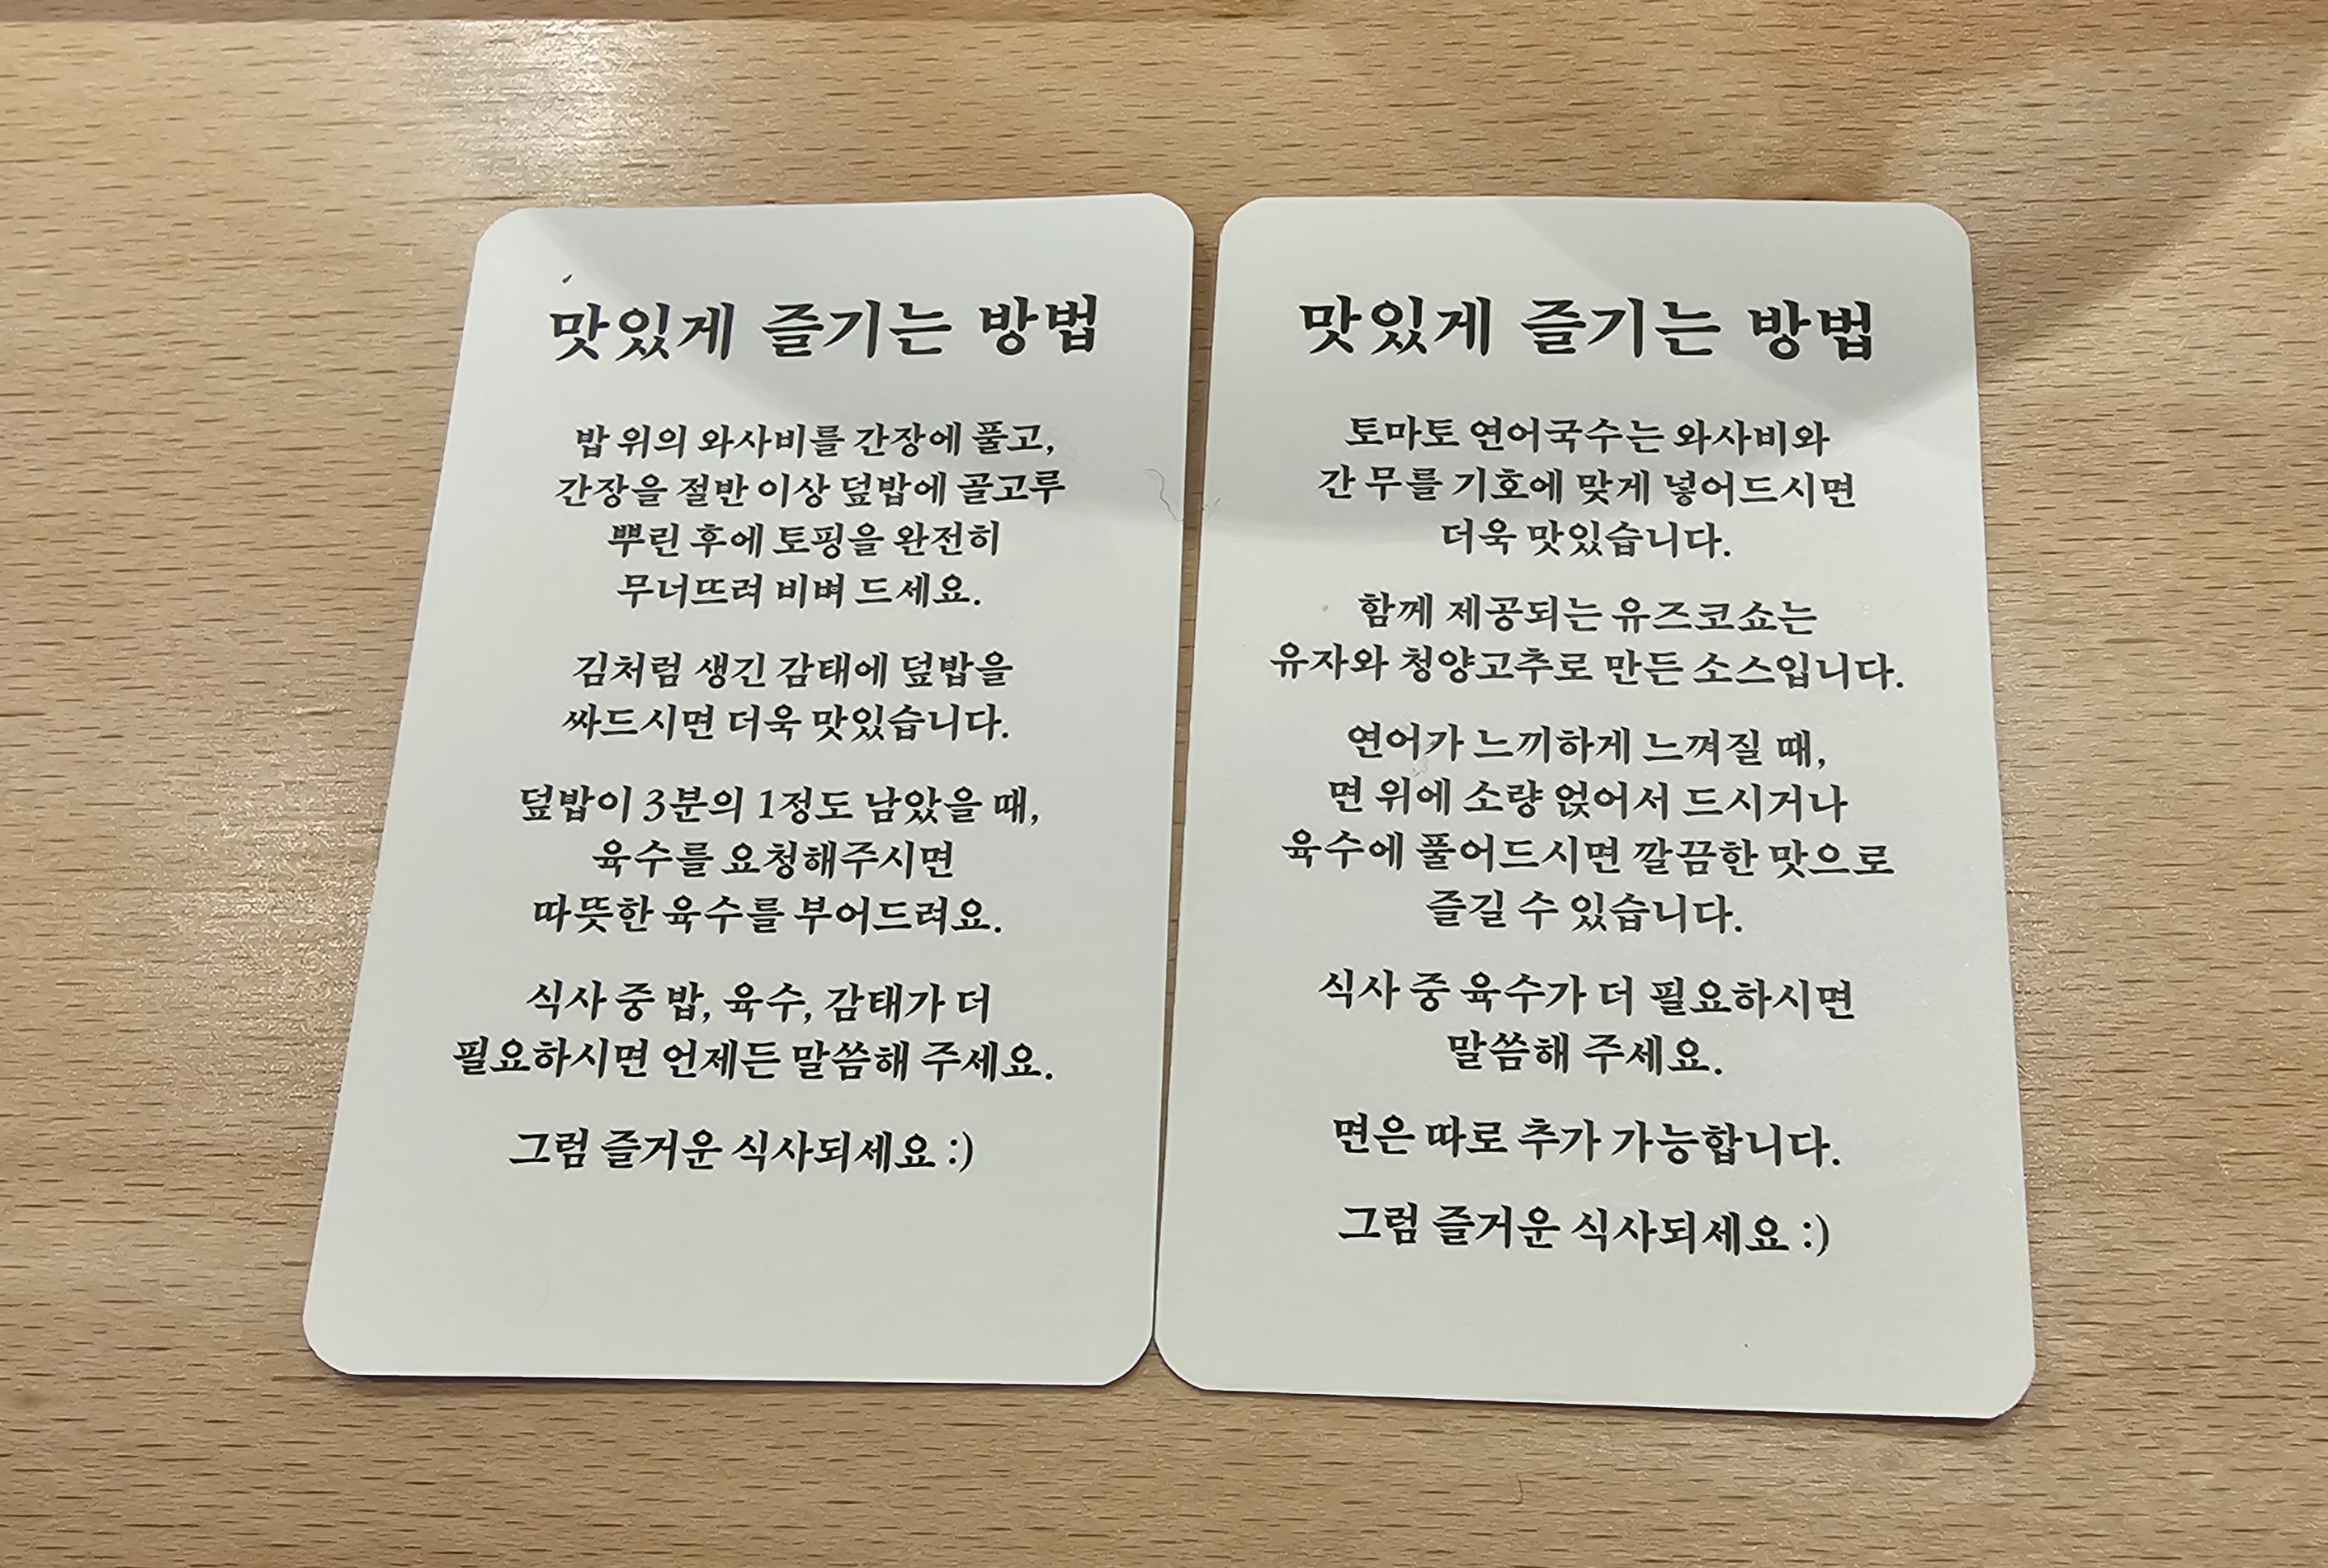 맛있게 즐기는 방법
밥 위의 와사비를 간장에 풀고,
간장을 절반 이상 덮밥에 골고루
뿌린 후에 토핑을 완전히
무너뜨려 비벼 드세요.
김처럼 생긴 감태에 덮밥을
싸드시면 더욱 맛있습니다.
덮밥이 3분의 1정도 남았을 때,
육수를 요청해주시면
따뜻한 육수를 부어드려요.
식사 중 밥, 육수, 감태가 더
필요하시면 언제든 말씀해 주세요.
그럼 즐거운 식사되세요 :)
맛있게 즐기는 방법
토마토 연어국수는 와사비와
간 무를 기호에 맞게 넣어드시면
더욱 맛있습니다.
함께 제공되는 유즈코쇼는
유자와 청양고추로 만든 소스입니다.
연어가 느끼하게 느껴질 때,
면 위에 소량 얹어서 드시거나
육수에 풀어드시면 깔끔한 맛으로
즐길 수 있습니다.
식사 중 육수가 더 필요하시면
말씀해 주세요.
면은 따로 추가 가능합니다.
그럼 즐거운 식사되세요 :)